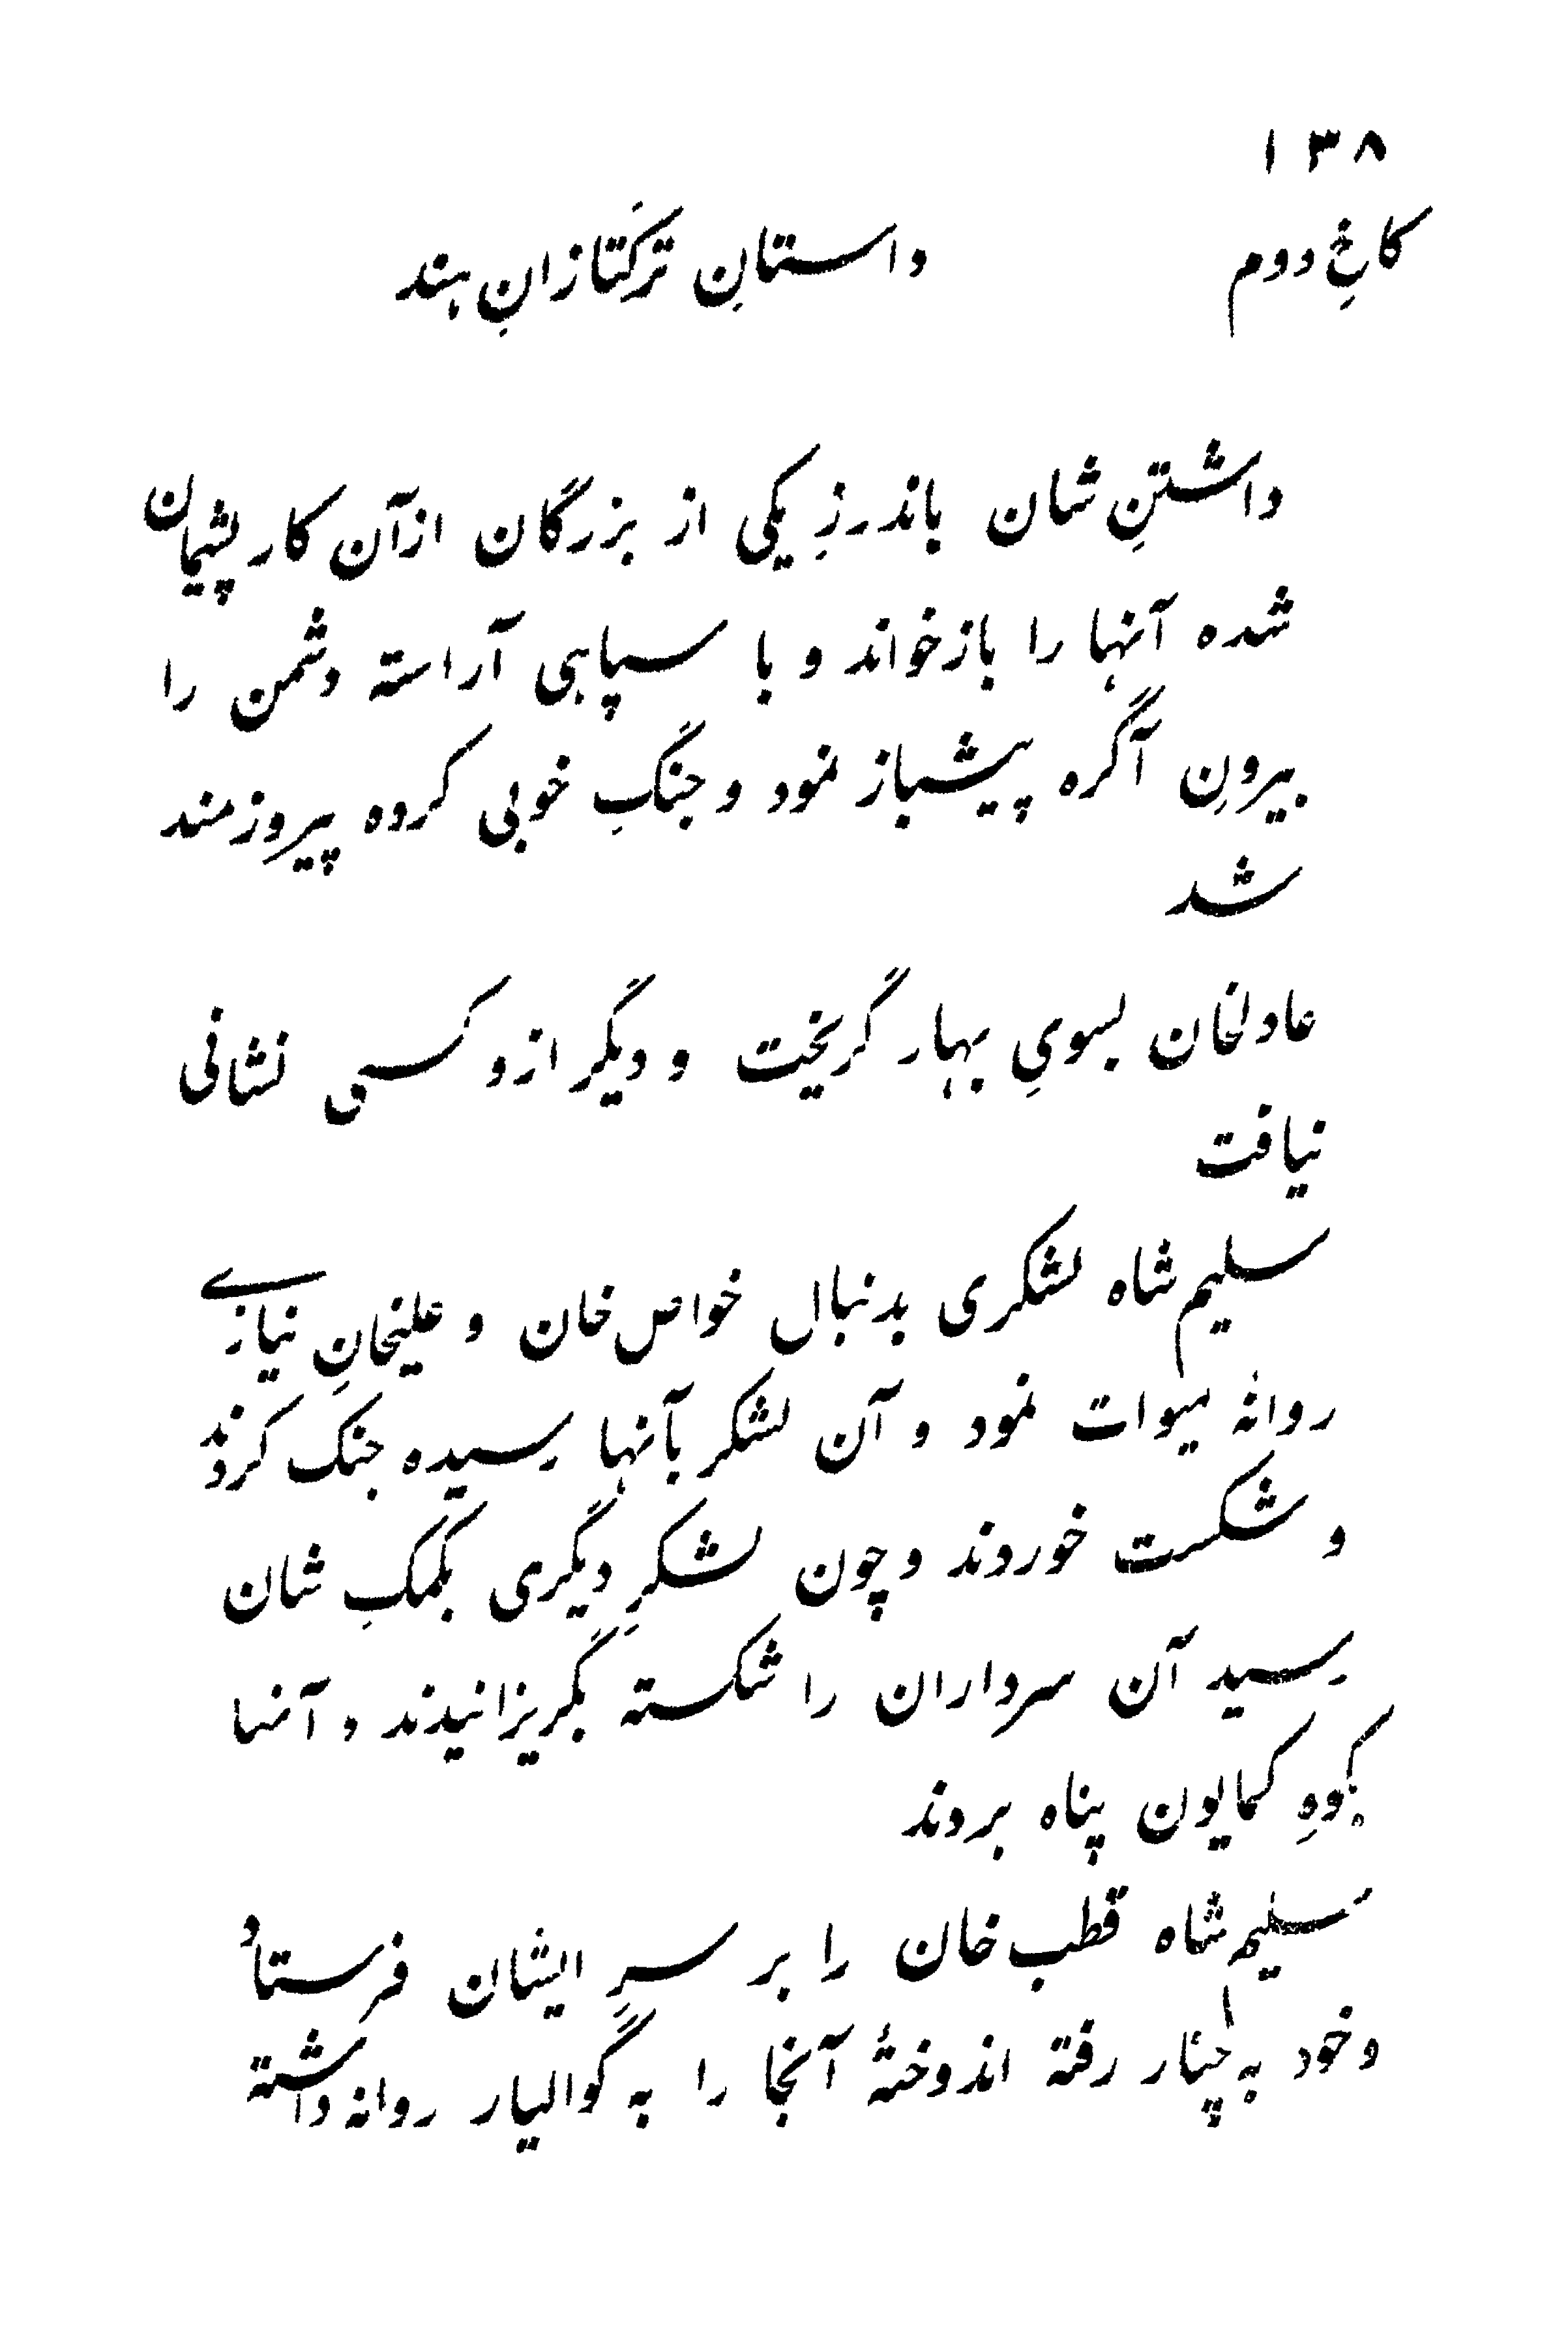 ۱۳۸
کاخِ دوم داستانِ ترکتازانِ هند
داشتنِ شان باندرزِ یکی از بزرگان ازآن کار پشیمان
شده آنها را بازخواند و با سپاهی آراسته دشمن را
بیرونِ آگره پیشباز نمود و جنگِ خوبی کرده پیروزمند
شد
عادلخان بسویِ بهار گریخت و دیگر ازو کسی نشانی
نیافت
سلیم شاه لشکری بدنبال خواص خان و علیخانِ نیازے
روانهٔ میوات نمود و آن لشکر بآنها رسیده جنک کردند
و شکست خوردند و چون لشکرِ دیگری بکمکِ شان
رسید آن سرداران را شکسته بگریزانیدند و آنها
بکوهِ کمایون پناه بردند
سلیم شاه قطب خان را بر سرِ ایشان فرستاد
و خود به چنار رفته اندوختهٔ آنجا را به گوالیار روانه داشته